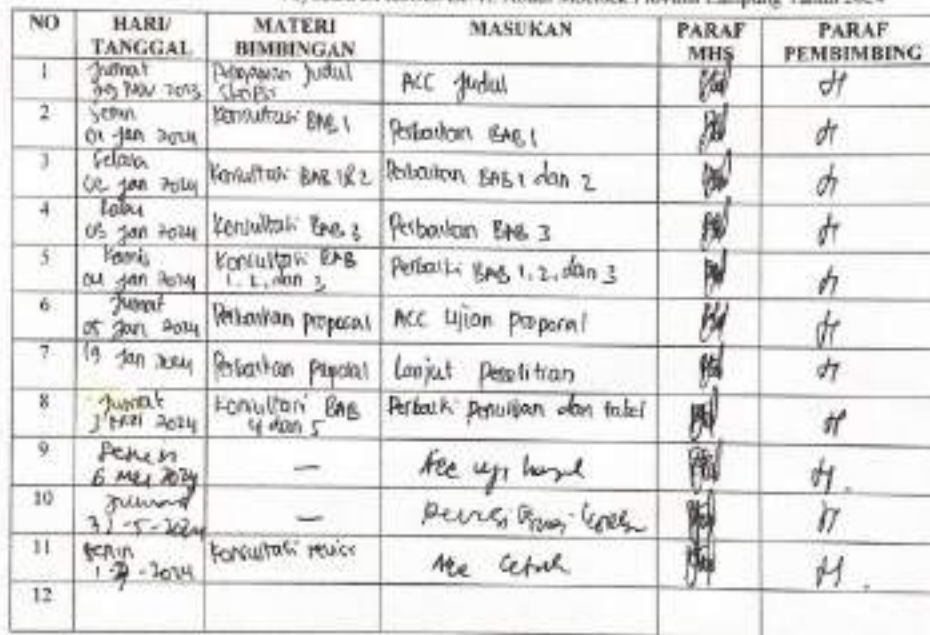 Provinsi Lampung Tahun 2024
NO HARI/ TANGGAL MATERI BIMBINGAN MASUKAN PARAF MHS PARAF PEMBIMBING
1 Jumat Judul ACC Judul
2 Senin 01 Jan 2024 Konsultasi BAB 1 Perbaikan BAB 1
3 Selasa 02 Jan 2024 Konsultasi BAB 1 & 2 Perbaikan BAB 1 dan 2
4 Rabu 03 Jan 2024 Konsultasi BAB 3 Perbaikan BAB 3
5 Kamis 04 Jan 2024 Konsultasi BAB 1, 2, dan 3 Perbaiki BAB 1, 2, dan 3
6 Jumat 05 Jan 2024 Perbaikan proposal ACC Ujian proposal
7 19 Jan 2024 Perbaikan proposal Lanjut Penelitian
8 Jumat 2024 Konsultasi BAB 4 dan 5 Perbaiki penulisan dan tabel
9 Senin 6 Mei 2024 — Acc uji hasil
10 31-5-2024 —
11 Senin 2024 Konsultasi revisi Acc Cetak
12